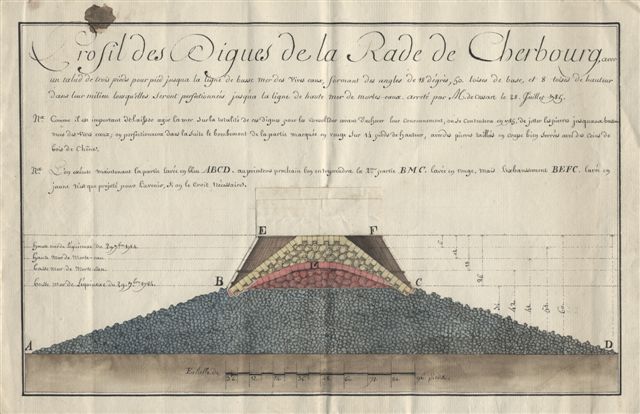 Profil des Digues de la Rade de Cherbourg, avec
un talud de trois pieds pour pied jusqua la ligne de basse mer des vives eaux, formant des angles de 18 dégrés, 50 toises de base, et 8 toises de hauteur
dans leur milieu lorsqu'elles seront perfectionnées jusqua la ligne de haute mer de mortes-eaux. arrêté par M. de Cessart le 28 Juillet 1785.
Nta Comme il est important de laisser agir la mer sur la totalité de ces digues pour les consolider avant d'achever leur Couronnement, on se Contentera en 1785, de jetter les pierres jusqu'aux basses
mers des vives eaux; en perfectionnant dans la suite le bombement de la partie marquée en rouge sur 14 pieds de hauteur, avec des pierres taillées en coupe bien serrées avec des Coins de
bois de Chêne.
L'on exécute maintenant la partie lavée en bleu ABCD. au printems prochain l'on entreprendra la 2me partie BMC. lavée en rouge, mais l'exhaussement BEFC. lavé en
jaune n'est que projetté pour l'avenir, si on le Croit nécessaire.
E F
haute mer de l'équinoxe du 29 7bre 1784.
haute Mer de Morte-eau.
basse Mer de Morte-eau.
M
basse Mer de l'équinoxe du 29. 7bre 1784.
B C
A D
Echelle de
pieds.